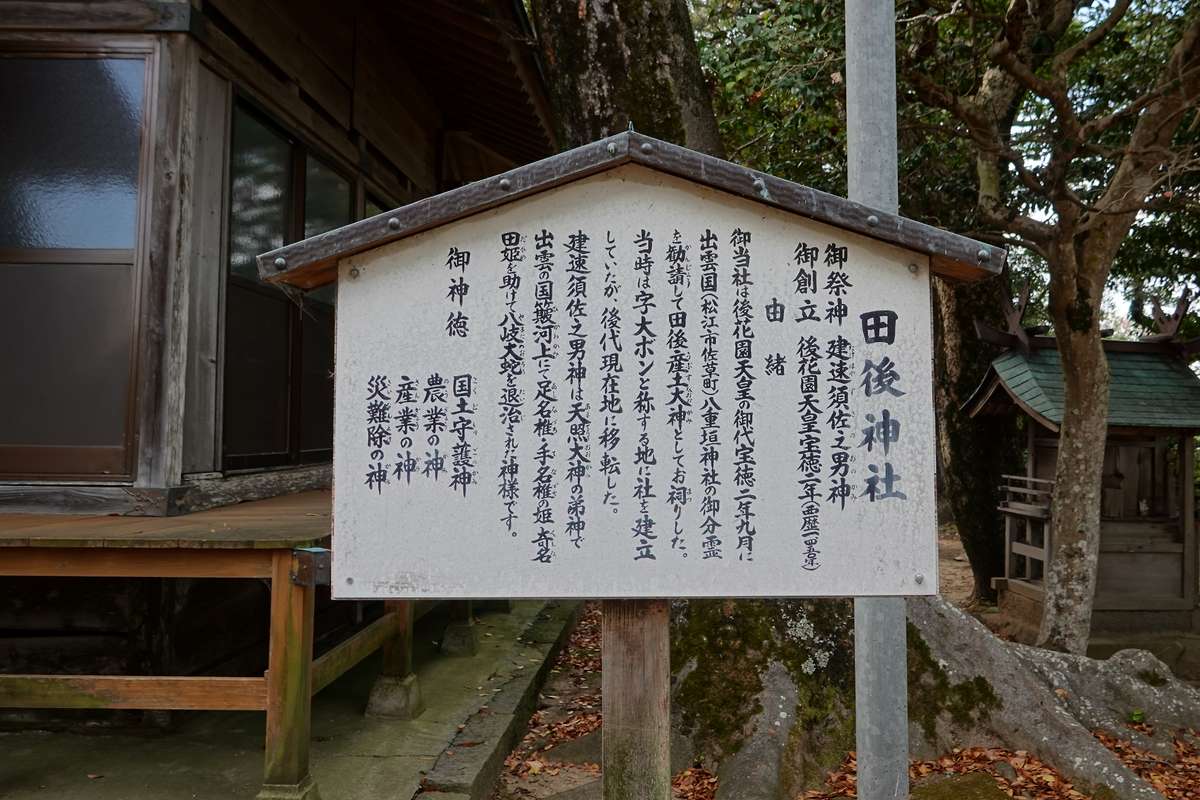 田後神社
御祭神 建速須佐之男神
御創立 後花園天皇宝徳二年(西歴一四五〇年)
由緒
御当社は後花園天皇の御代宝徳二年九月に
出雲国(松江市佐草町)八重垣神社の御分霊
を勧請して田後産土大神としてお祠りした。
当時は字大ボンと称する地に社を建立
していたが、後代現在地に移転した。
建速須佐之男神は天照大神の弟神で
出雲の国簸河上にて足名椎・手名椎の姫 奇名
田姫を助けて八岐大蛇を退治された神様です。
御神徳
国土守護神
農業の神
産業の神
災難除の神